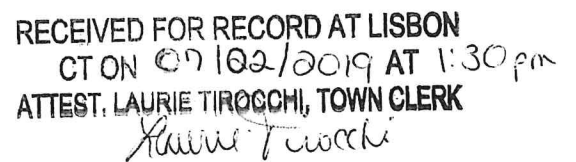 RECEIVED FOR RECORD AT LISBON
CT ON 07/02/2019 AT 1:30 pm
ATTEST. LAURIE TIROCCHI, TOWN CLERK
Laurie Tirocchi